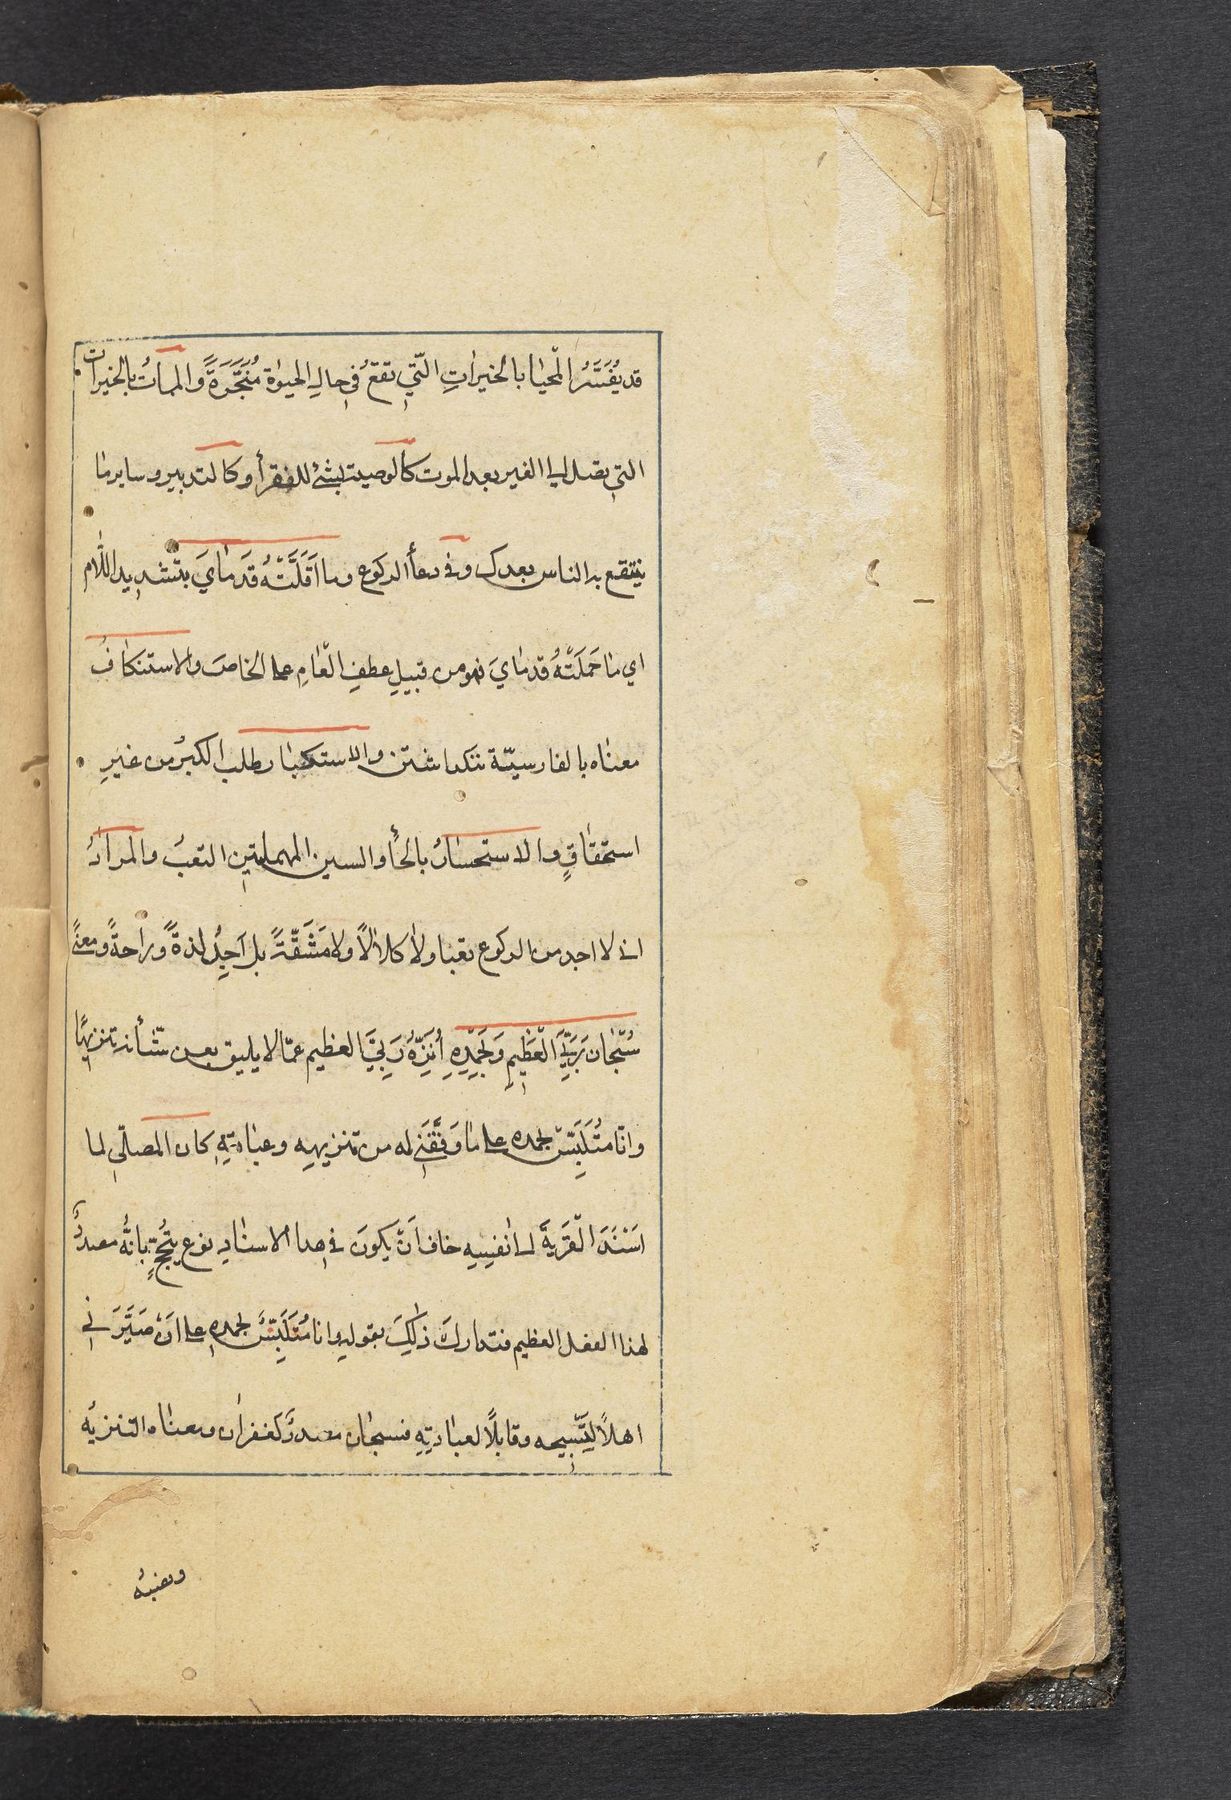 قد يُفَسَّرُ الْمحيٰا بالخيرٰاتِ الّتي تقعُ في حالِ الحيوٰة مُنَجَّزَةً والممٰاتُ بالخيرات
التي يصل الي الغير بعد الموت كالوصية بشئ للفقرأ وكالتدبير وساير مٰا
ينتفع به الناس بعدك وفي دعأ الركوع وما اَقَلَّتْهُ قَدَمٰايَ بتشديد اللّام
اي مٰا حَمَلَتْهُ قدمٰايَ فهو من قبيلِ عطفِ الْعٰامِ علي الخاص والاستنكافُ
معنٰاه بالفارسيّة ننك داشتن والاستكبٰار طلب الكبر من غيرِ
استحقٰاقٍ والاستحسٰارُ بالحٰأ والسين المهملتين التعبُ والمرادُ
اني لا اجد من الركوع تعبا ولا كلالًا ولا مَشَقَّةً بل اَجِدُ لذةً وراحةً ومعنًى
سُبْحٰان رَبِّيَ الْعَظِيمِ وَبِحَمْدِهِ اُنَزِّهُ رَبِّيَ العظيم عمّا لا يليق بعز شأنه تنزيهًا
وانا مُتَلَبِّسٌ بحمده علي مٰا وَفَّقَني له من تنزيهِهِ وعبٰادتِهِ كان المصلّي لما
اَسْنَدَ الْتنزيهَ الي نفسِهِ خاف اَنْ يكونَ في هذا الاسنٰادِ نوع تبجّحٍ بانَّهُ مصدرٌ
لهذا الفعل العظيم فتدٰارك ذٰلِكَ بقوله وانا مُتَلَبِّسٌ بحمده علي انْ صَيَّرَني
اهلًا لِتَسْبيحه وقابلًا لعبٰادتِهِ فسبحٰان مصدرٌ كغفران ومعنٰاه التنزيهُ
ونصبُه